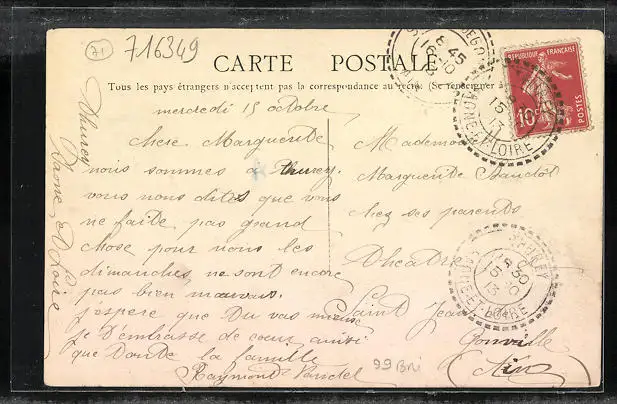 71
716349
CARTE POSTALE
Tous les pays étrangers n'acceptent pas la correspondance au recto. (Se renseigner à
mercredi 15 octobre
Chere Marguerite
nous sommes a Thurey.
vous nous dites que vous
ne faite pas grand
chose pour nous les
dimanches ne sont encore
pas bien mauvais.
j'espère que Du vas mieux
je t'embrasse de coeur ainsi
que Toute la famille
Raymond
Thurey
Saone et Loire
Marguerite
chez ses parents
Theatre
Saint Jean
(Ain)
99 Bri
REPUBLIQUE FRANÇAISE
10c
POSTES
8 45
16-10
13
15
13
ET-LOIRE
THUREY
15-10
13
ET-LOIRE